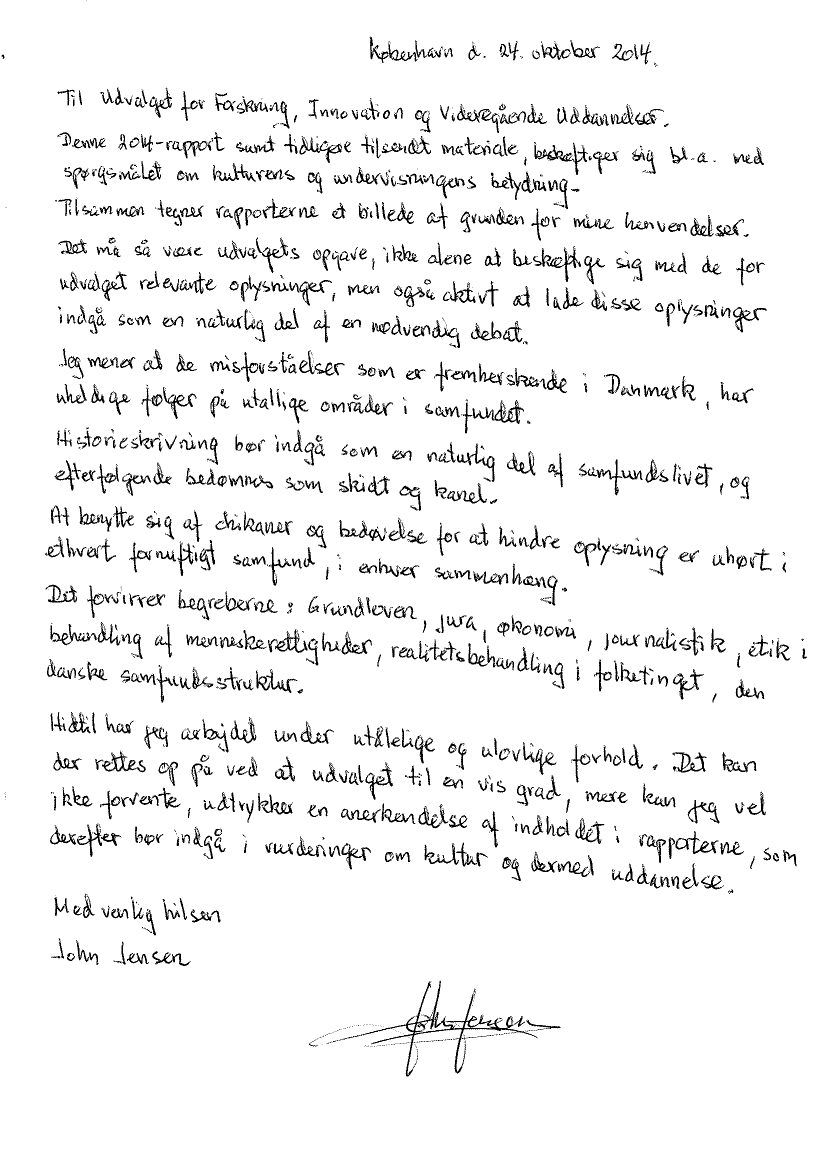 København d. 24. oktober 2014.
Til Udvalget for Forskning, Innovation og Videregående Uddannelser.
Denne 2014-rapport samt tidligere tilsendt materiale, beskæftiger sig bl.a. med
spørgsmålet om kulturens og undervisningens betydning.
Tilsammen tegner rapporterne et billede af grunden for mine henvendelser.
Det må så være udvalgets opgave, ikke alene at beskæftige sig med de for
udvalget relevante oplysninger, men også aktivt at lade disse oplysninger
indgå som en naturlig del af en nødvendig debat.
Jeg mener at de misforståelser som er fremherskende i Danmark, har
uheldige følger på utallige områder i samfundet.
Historieskrivning bør indgå som en naturlig del af samfundslivet, og
efterfølgende bedømmes som skidt og kanel.
At benytte sig af chikaner og bedøvelse for at hindre oplysning er uhørt i
ethvert fornuftigt samfund, i enhver sammenhæng.
Det forvirrer begreberne: Grundloven, jura, økonomi, journalistik, etik i
behandling af menneskerettigheder, realitetsbehandling i folketinget, den
danske samfundsstruktur.
Hidtil har jeg arbejdet under utålelige og ulovlige forhold. Det kan
der rettes op på ved at udvalget til en vis grad, mere kan jeg vel
ikke forvente, udtrykker en anerkendelse af indholdet i rapporterne, som
derefter bør indgå i vurderinger om kultur og dermed uddannelse.
Med venlig hilsen
John Jensen
John Jensen